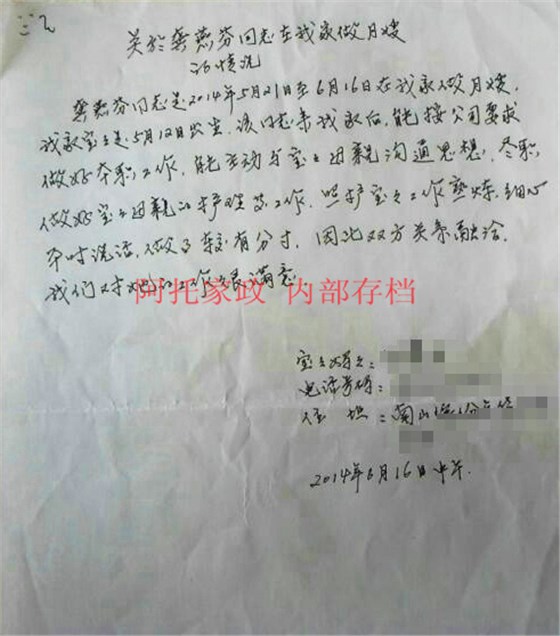 关於龚燕芬同志在我家做月嫂
的情况
龚燕芬同志是2014年5月21日至6月16日在我家做月嫂,
我家宝宝是5月12日出生.该同志来我家后,能按公司要求
做好本职工作,能主动与宝宝母亲沟通思想,尽职
做好宝宝母亲的护理等工作.照护宝宝工作熟炼,细心
平时说话,做事较有分寸,因此双方关系融洽.
我们对她的工作很满意
阿托家政 内部存档
宝宝妈妈:
电话号码:
住址:南山
2014年6月16日中午.